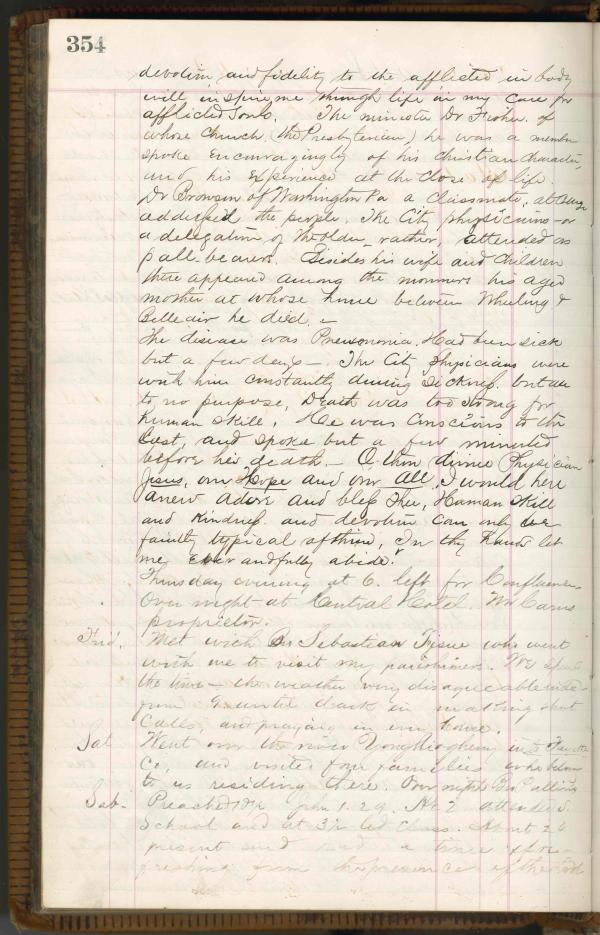 354
devotion and fidelity to the afflicted in body
will inspire me through life in my care for
afflicted souls. The minister Dr Fisher of
whose church (the Presbyterian) he was a member
spoke encouragingly of his christian character,
and his experience at the close of life.
Dr Brownson of Washington Pa a classmate, at College
addressed the people. The City physicians or
a delegation of the older, rather, attended as
pall-bearers. Besides his wife and children
there appeared among the mourners his aged
mother at whose home between Wheeling &
Belleair he died. –
The disease was Pneumonia. Had been sick
but a few days –. The City physicians were
with him constantly during sickness. but all
to no purpose, Death was too strong for
human skill. He was conscious to the
last, and spoke but a few minutes
before his death. – O, thou divine Physician
Jesus, our Hope and our All, I would here
anew adore and bless Thee, Human skill
and kindness. and devotion can only be
faintly typical of thine, In thy hands let
me ever and fully abide.
Thursday evening at 6. left for Confluence
Over night at Central Hotel. Mr
proprietor.
Frid. Met with Sebastian who went
with me to visit my parishioners. We spent
the time – the weather very disagreeable
from 9 until dark in making short
calls, and praying in every house.
Sat Went over the river Youghiogheny into Fayette
Co, and visited four families who belong
to us residing there. Over night
Sab. Preached John 1.29. At 2 attended S.
School and at 3½ led class. About 20
present and a time of re-
freshing from the presence of the Lord